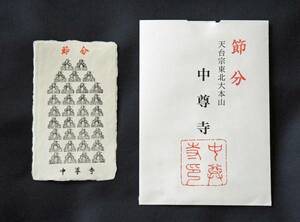 節分
中尊寺
節分
天台宗東北大本山
中尊寺
中尊
寺印